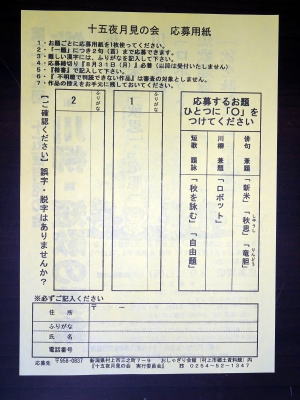 十五夜月見の会　応募用紙
1・お題ごとに応募用紙を1枚使ってください。
2・「一題」につき2句（首）まで応募できます。
3・難しい漢字には、ふりがなを記入して下さい。
4・応募締切り「8月31日（月）」必着（以降は受付いたしません）
5・『楷書』で記入して下さい。
6・『不明瞭で判読できない作品』は審査の対象としません。
7・作品の控えをお手元に残しておいてください。
応募するお題
ひとつに「〇」を
つけてください
俳句　兼題
「新米」「秋思」「竜胆」
しゅうし
りんどう
川柳　兼題
「ロボット」
短歌　題詠
「秋を詠む」「自由題」
1
ふりがな
2
ふりがな
【ご確認ください】誤字・脱字はありませんか？
※必ずご記入ください
住所
〒　－
ふりがな
氏名
電話番号
応募先
〒958-0837
新潟県村上市三之町7－9　おしゃぎり会館（村上市郷土資料館）内
『十五夜月見の会　実行委員会』　☎ 0254-52-1347